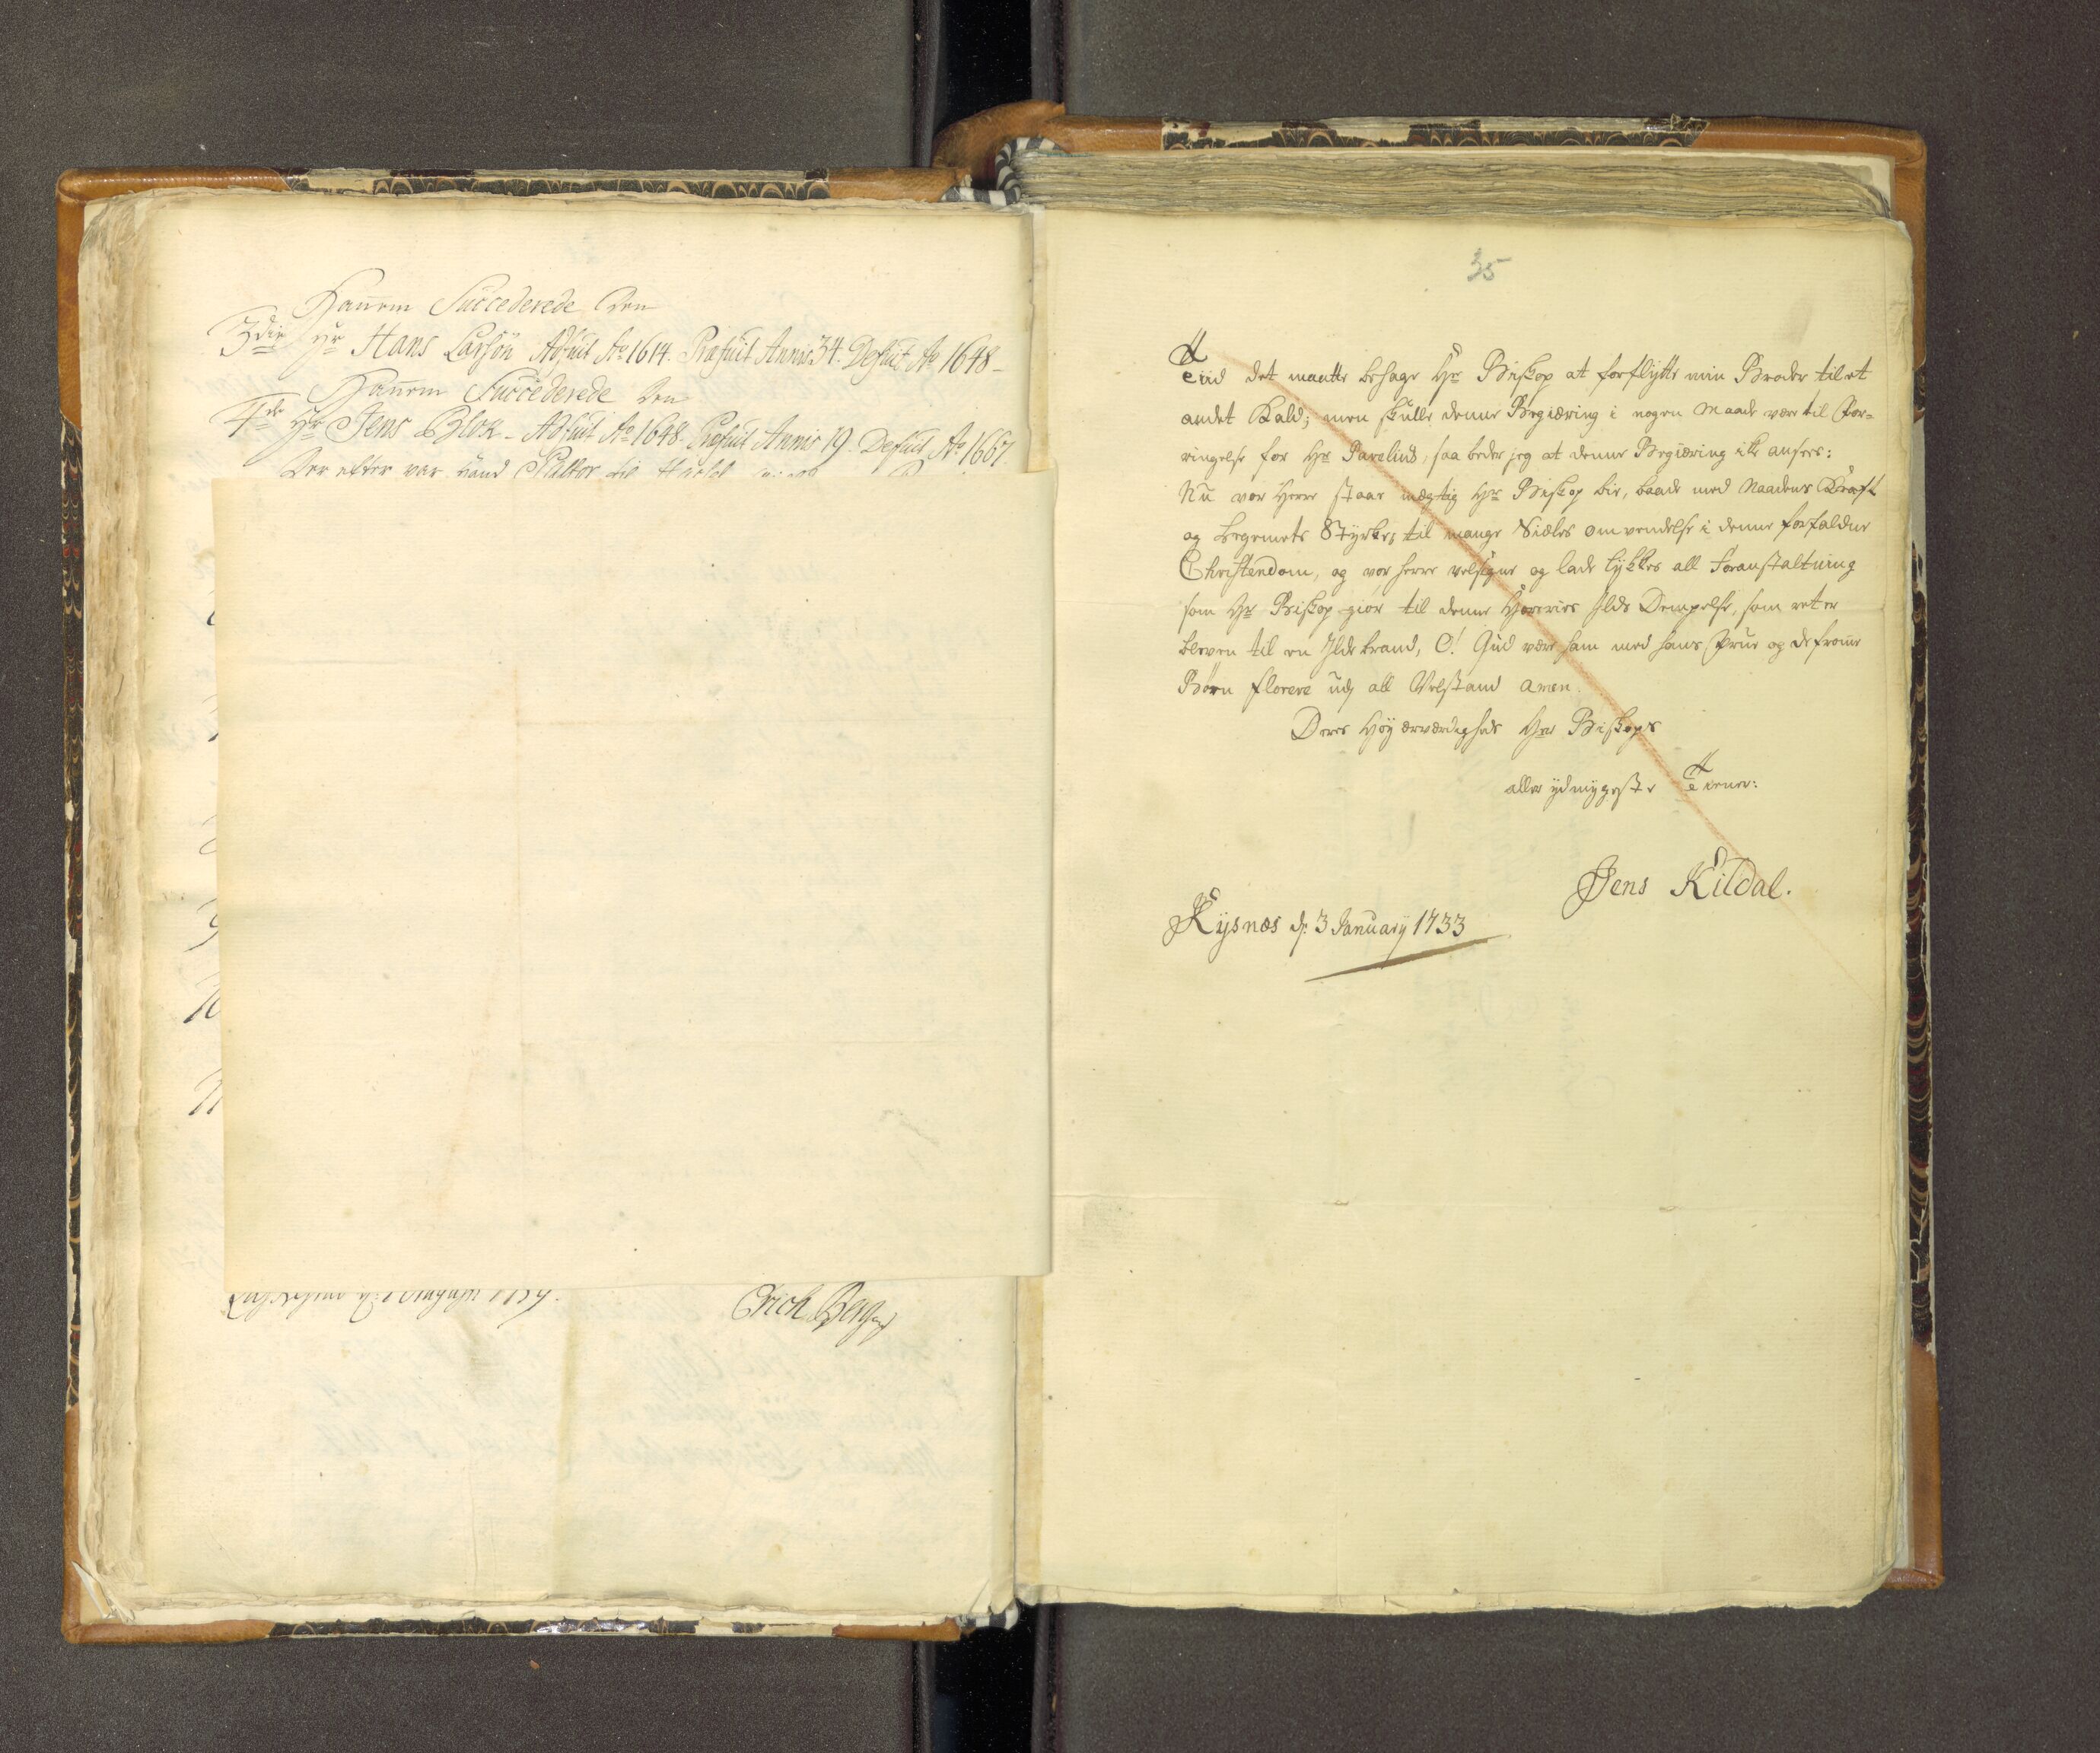 Hannem Succederede den
3die Hr Hans Larsön Adfuit Ao 1614. Præfuit Annis 34. Defuit Ao 1648 –
Hannem Succederede den
4de Hr Jens Blok – Adfuit Ao 1648. Præfuit Annis 19. Defuit Ao 1667.
Der efter var hand Pastor til
Erich Berg
35
det maatte behage Hr Biskop at forflÿtte min Broder til et
andet Kald; men skulle denne Begiæring i nogen maade være til For=
ringelse for Hr Parelius, saa beder jeg at denne Begiæring ikke ansees:
Nu vor Herre staae mægtig Hr Biskop bie, baade med Naadens Kraft
og Legemets Styrke, til mange Siæles omvendelse i denne forfaldne
Christendom, og vor herre velsigne og lade lykkes all foranstaltning
som Hr Biskop giør til denne Ilds Dempelse, som ret er
bleven til en Ildebrand, O! Gud være ham med hans Frue og de fromme
Børn florere udj all Velstand Amen.
Deres Høÿærværdigheds Hr Biskops
aller ÿdmygeste Tiener:
Jens Kildal.
Kysnæs d: 3 Januarÿ 1733